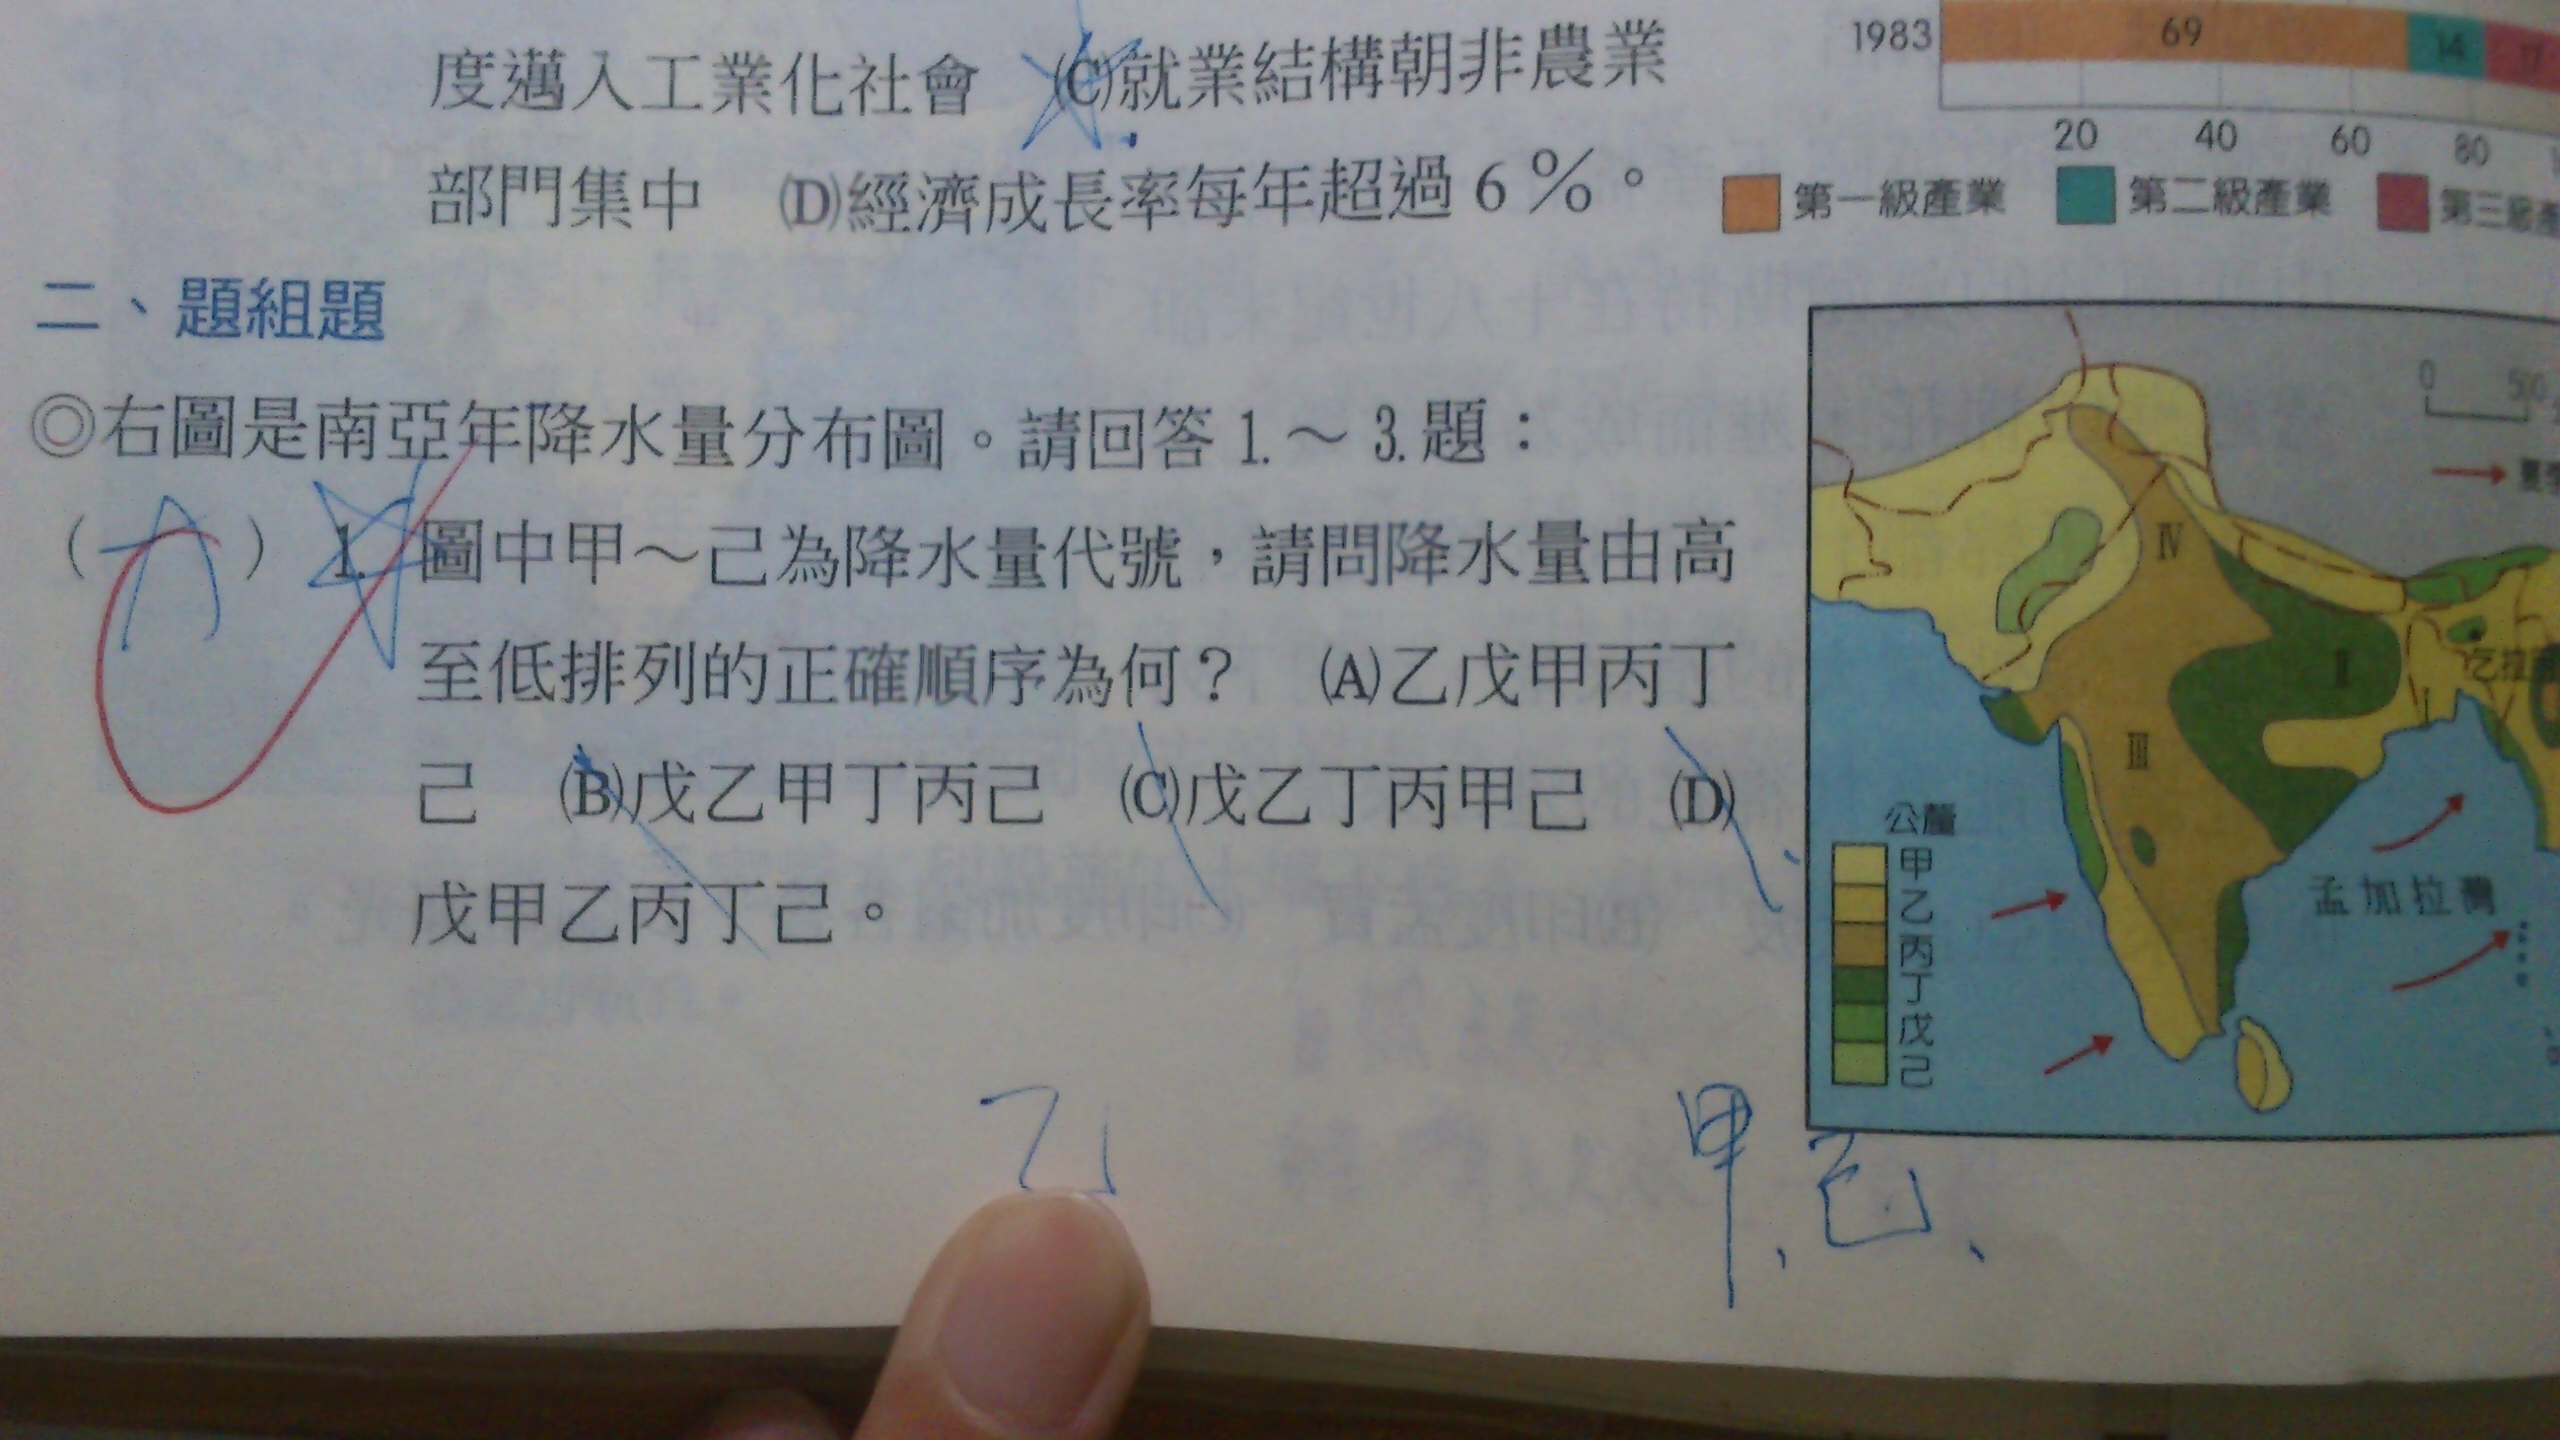 度邁入工業化社會 (C)就業結構朝非農業
部門集中 (D)經濟成長率每年超過6%。
1983 69 14 17
20 40 60 80
第一級產業 第二級產業 第三級產
二、題組題
◎右圖是南亞年降水量分布圖。請回答1.～3.題：
(A) 1. 圖中甲～己為降水量代號，請問降水量由高
至低排列的正確順序為何？ (A)乙戊甲丙丁
己 (B)戊乙甲丁丙己 (C)戊乙丁丙甲己 (D)
戊甲乙丙丁己。
0 500
夏季
IV
II
III
乞拉
孟加拉灣
公釐
甲
乙
丙
丁
戊
己
甲、